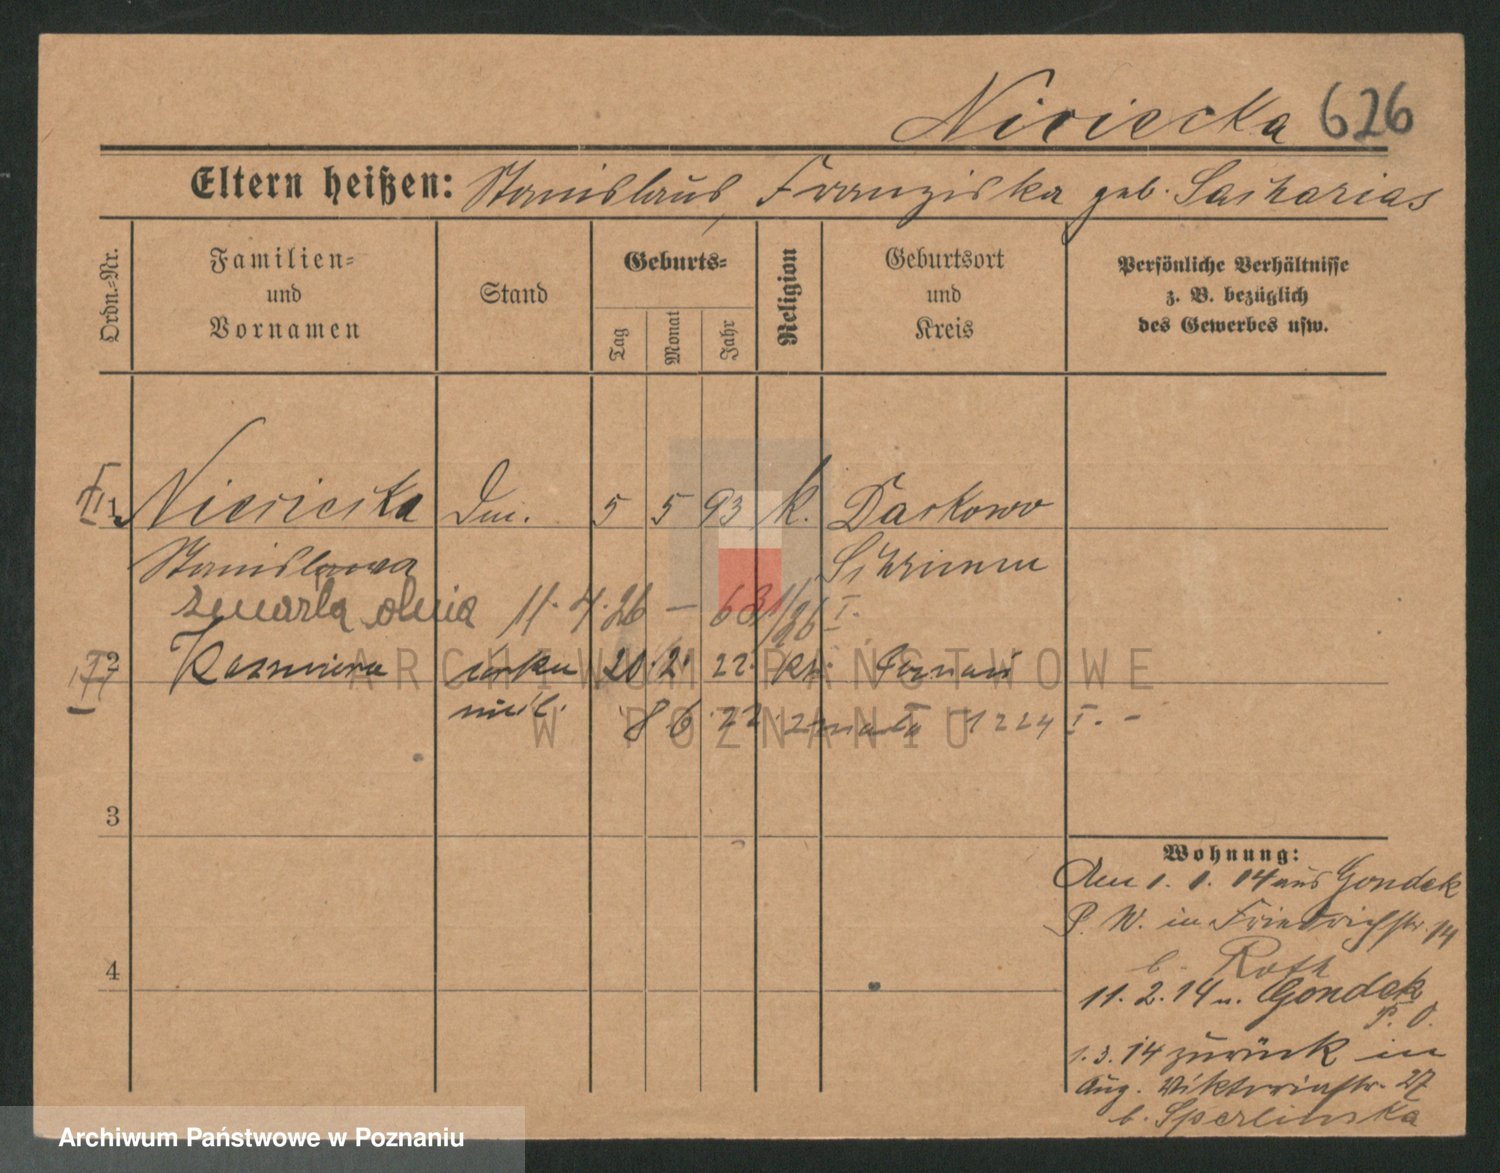 Niziecka 626
Eltern heißen: Stanislaus, Franziska geb. Zacharias
Ordn.-Nr.
Familien-
und
Vornamen
Stand
Geburts-
Tag
Monat
Jahr
Religion
Geburtsort
und
Kreis
Persönliche Verhältnisse
z. B. bezüglich
des Gewerbes usw.
1 5 5 93 k.
Stanislawa Schrimm
zmarła dnia 11.4.26 –
2 Kazmiera córka 20. 2. 22. kt.
nieśl. 8 6. 22 zmarła
3
4
Wohnung:
Am 1. 1. 14 aus Gondek
P. W. in Friedrichstr. 14
b. Roth
11. 2. 14 n. Gondek
P. O.
1. 3. 14 zurück in
Aug. Viktoriastr. 27
b. Sperlinska
ARCHIWUM PAŃSTWOWE
W POZNANIU
Archiwum Państwowe w Poznaniu